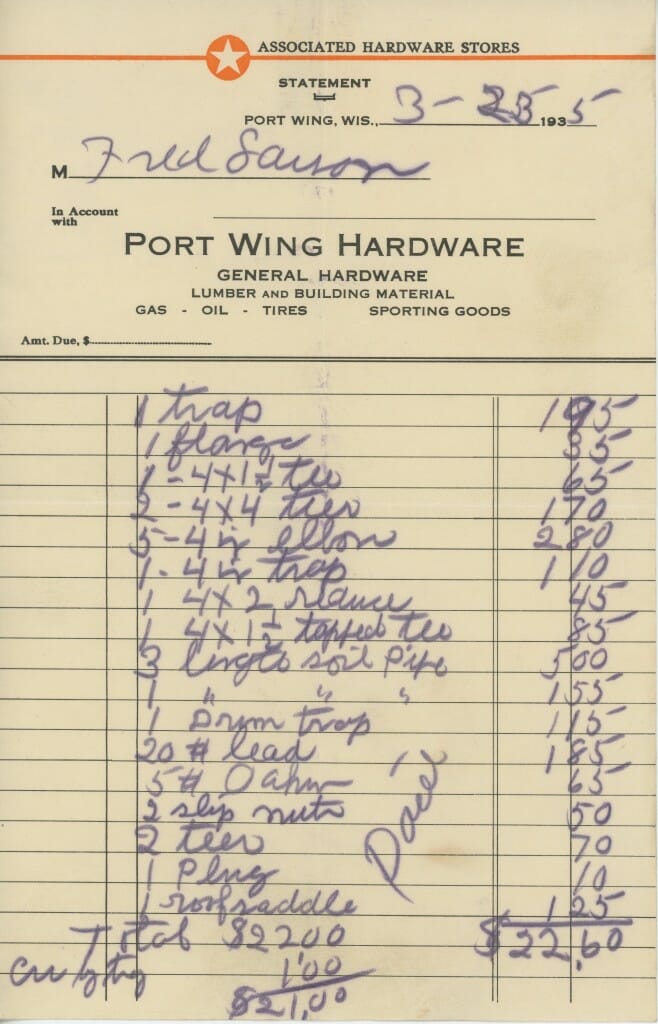 ASSOCIATED HARDWARE STORES
STATEMENT
PORT WING, WIS., 3-25 1935
M Fred Larson
In Account with
PORT WING HARDWARE
GENERAL HARDWARE
LUMBER AND BUILDING MATERIAL
GAS - OIL - TIRES SPORTING GOODS
Amt. Due, $
1 trap 195
1 flange 35
1-4x1½ tee 65
2-4x4 tees 170
5-4 in elbow 280
1-4 in trap 110
1 4x2 reduce 45
1 4x1½ tapped tee 85
3 length soil pipe 500
1 " " " 155
1 Drum trap 115
20 # lead 185
5 # Oakum 65
2 slip nuts 50
2 tees 70
1 Plug 10
1 roof saddle 125
Paid
Total $2200 $22,60
1'00
$21,00